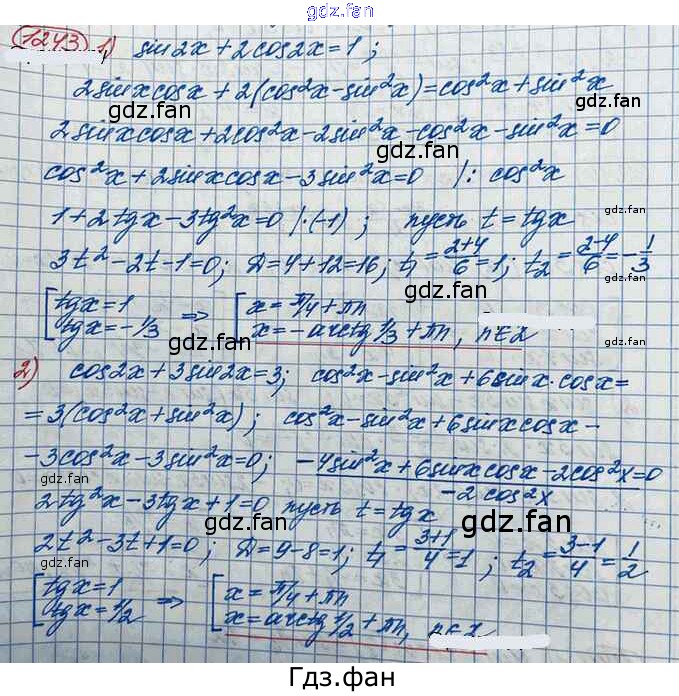 gdz.fan
1243 1) sin2x + 2cos2x = 1 ;
2sinxcosx + 2(cos²x - sin²x) = cos²x + sin²x
gdz.fan gdz.fan
2sinxcosx + 2cos²x - 2sin²x - cos²x - sin²x = 0
gdz.fan
cos²x + 2sinxcosx - 3sin²x = 0 /: cos²x
gdz.fan
1 + 2tgx - 3tg²x = 0 /·(-1) ; пусть t = tgx
gdz.fan
3t² - 2t - 1 = 0; D = 4 + 12 = 16; t₁ = (2+4)/6 = 1; t₂ = (2-4)/6 = -1/3
gdz.fan
[ tgx = 1 ⇒ [ x = π/4 + πn
tgx = -1/3 x = -arctg 1/3 + πn, n∈Z
gdz.fan
2) cos2x + 3sin2x = 3; cos²x - sin²x + 6sinx·cosx =
gdz.fan
= 3(cos²x + sin²x) ; cos²x - sin²x + 6sinxcosx -
gdz.fan
- 3cos²x - 3sin²x = 0; (-4sin²x + 6sinxcosx - 2cos²x = 0)/(-2cos²x)
gdz.fan
2tg²x - 3tgx + 1 = 0 пусть t = tgx
gdz.fan
2t² - 3t + 1 = 0; D = 9 - 8 = 1; t₁ = (3+1)/4 = 1 ; t₂ = (3-1)/4 = 1/2
gdz.fan
[ tgx = 1 ⇒ [ x = π/4 + πn
tgx = 1/2 x = arctg 1/2 + πn, n∈Z
gdz.fan
Гдз.фан